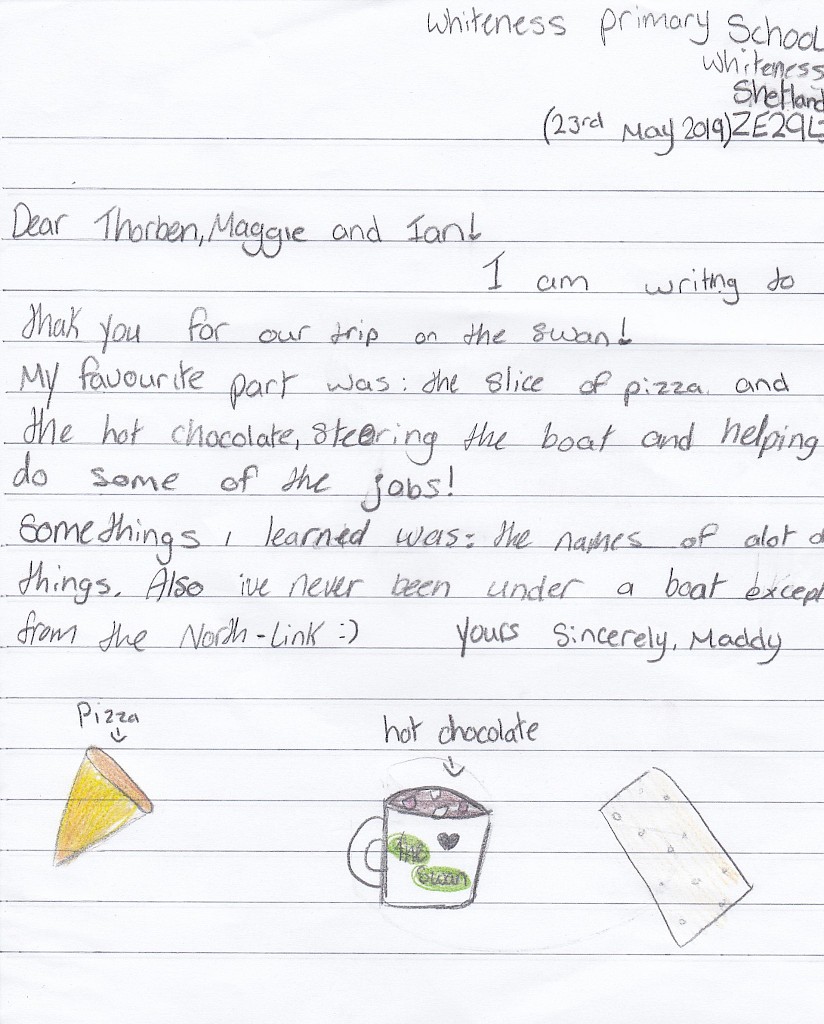 Whiteness primary School
Whiteness
Shetland
(23rd May 2019) ZE29L
Dear Thorben, Maggie and Ian!
I am writing to
thak you for our trip on the swan!
My favourite part was: the slice of pizza and
the hot chocolate, steering the boat and helping
do some of the jobs!
Some things I learned was: the names of alot o
things. Also ive never been under a boat except
from the North-Link :) yours Sincerely, Maddy
Pizza
hot chocolate
The
Swan